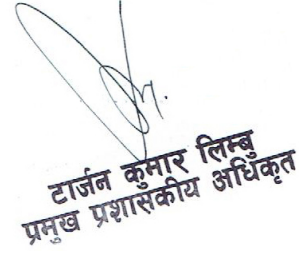 टार्जन कुमार लिम्बु
प्रमुख प्रशासकीय अधिकृत